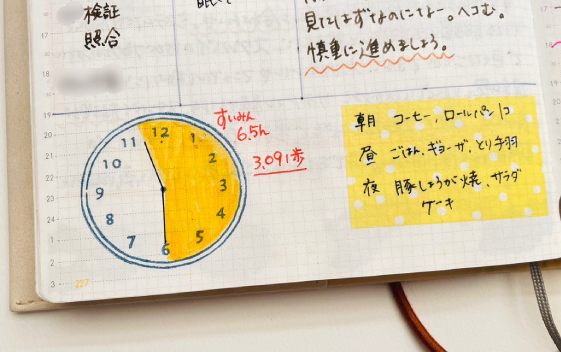 検証
照合
見にはずなのになー。ヘコむ。
慎重に進めましょう。
すいみん
6.5h
3,091歩
朝 コーヒー、ロールパン1コ
昼 ごはん、ギョーザ、とり手羽
夜 豚しょうが焼、サラダ
ケーキ
12
1
2
3
4
5
6
7
8
9
10
11
16
17
18
19
20
21
22
23
24
1
2
3
227